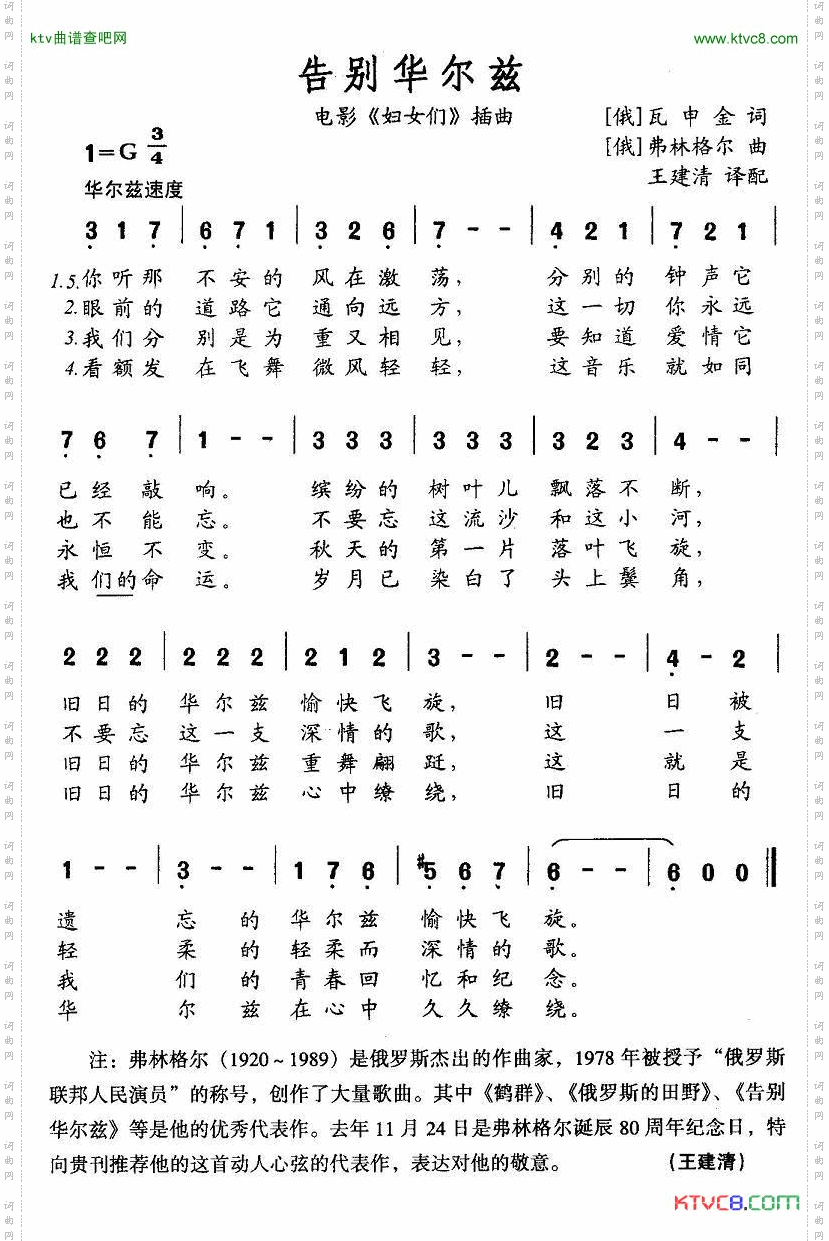 ktv曲谱查吧网 www.ktvc8.com
告别华尔兹
电影《妇女们》插曲 [俄]瓦申金 词
1=G 3/4 [俄]弗林格尔 曲
王建清 译配
华尔兹速度
3 1 7 | 6 7 1 | 3 2 6 | 7 - - | 4 2 1 | 7 2 1 |
1.5.你听那 不安的 风在激荡， 分别的 钟声它
2.眼前的 道路它 通向远方， 这一切 你永远
3.我们分 别是为 重又相见， 要知道 爱情它
4.看额发 在飞舞 微风轻轻， 这音乐 就如同
7 6 7 | 1 - - | 3 3 3 | 3 3 3 | 3 2 3 | 4 - - |
已经敲响。 缤纷的 树叶儿 飘落不断，
也不能忘。 不要忘 这流沙 和这小河，
永恒不变。 秋天的 第一片 落叶飞旋，
我们的命运。 岁月已 染白了 头上鬓角，
2 2 2 | 2 2 2 | 2 1 2 | 3 - - | 2 - - | 4 - 2 |
旧日的 华尔兹 愉快飞旋， 旧 日被
不要忘 这一支 深情的歌， 这 一支
旧日的 华尔兹 重舞翩跹， 这 就是
旧日的 华尔兹 心中缭绕， 旧 日的
1 - - | 3 - - | 1 7 6 | #5 6 7 | 6 - - | 6 0 0 ‖
遗 忘的 华尔兹 愉快飞旋。
轻 柔的 轻柔而 深情的歌。
我 们的 青春回 忆和纪念。
华 尔兹 在心中 久久缭绕。
注：弗林格尔（1920～1989）是俄罗斯杰出的作曲家，1978年被授予“俄罗斯
联邦人民演员”的称号，创作了大量歌曲。其中《鹤群》、《俄罗斯的田野》、《告别
华尔兹》等是他的优秀代表作。去年11月24日是弗林格尔诞辰80周年纪念日，特
向贵刊推荐他的这首动人心弦的代表作，表达对他的敬意。 （王建清）
KTVC8.COM